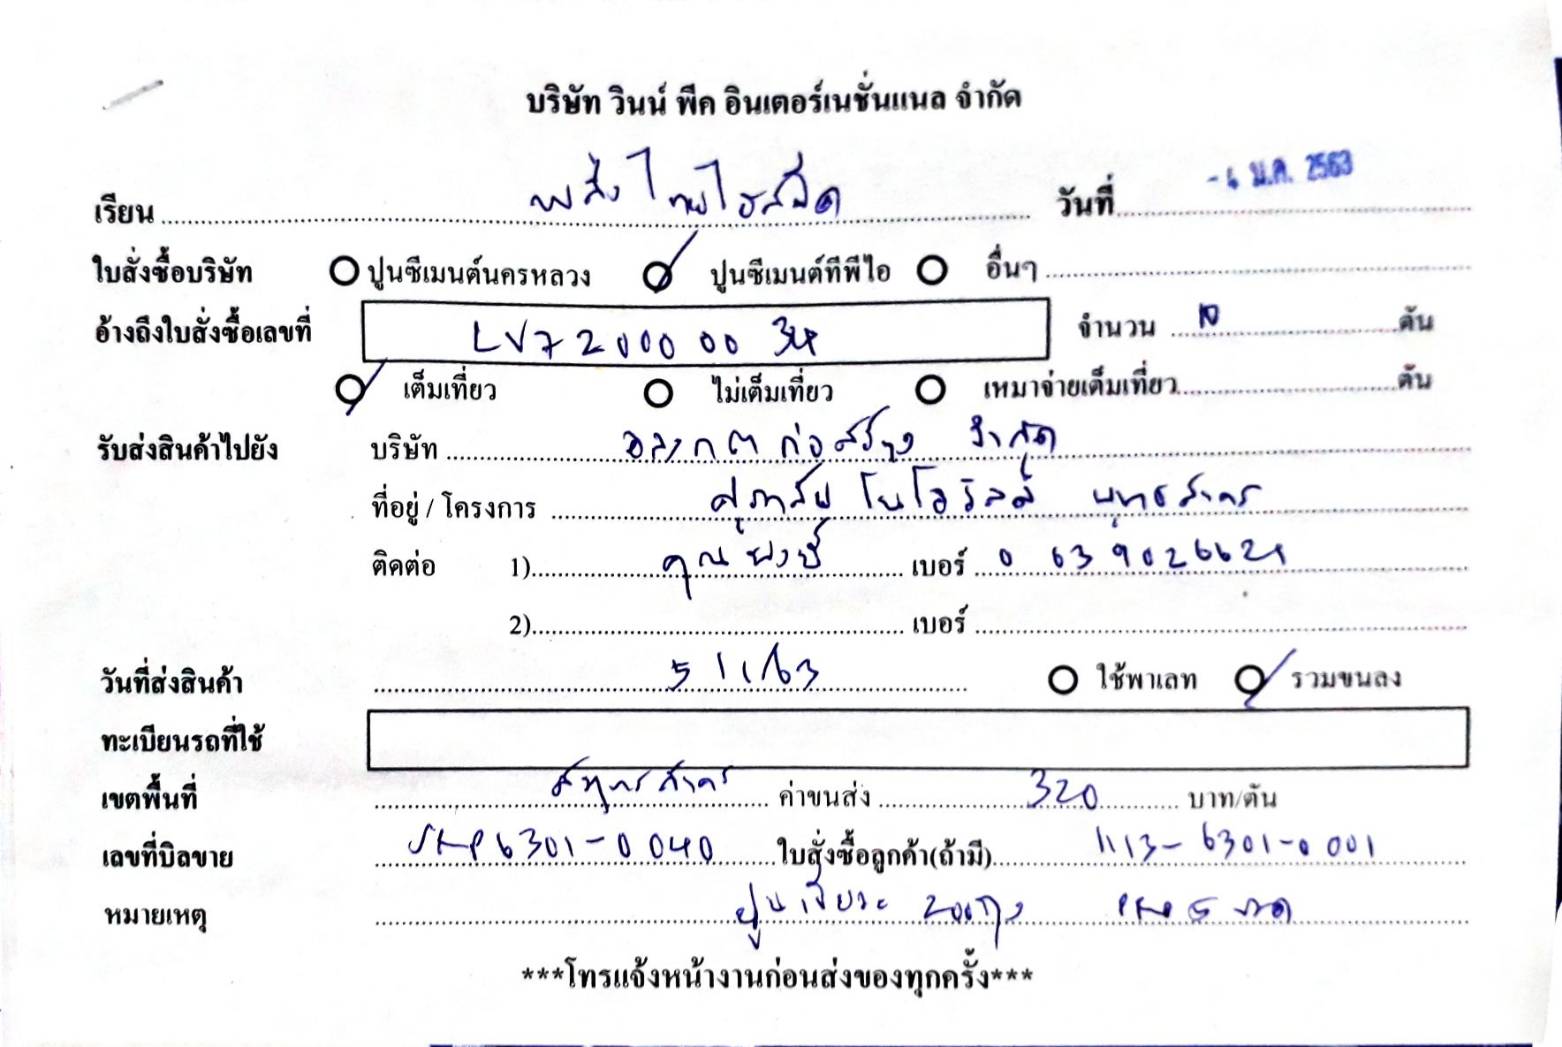 บริษัท วินน์ พีค อินเตอร์เนชั่นแนล จำกัด
เรียน วันที่ ม.ค. 2563
ใบสั่งซื้อบริษัท ปูนซีเมนต์นครหลวง ปูนซีเมนต์ทีพีไอ อื่นๆ
อ้างถึงใบสั่งซื้อเลขที่ LV720000034 จำนวน 10 ตัน
เต็มเที่ยว ไม่เต็มเที่ยว เหมาจ่ายเต็มเที่ยว ตัน
รับส่งสินค้าไปยัง บริษัท ก่อสร้าง จำกัด
ที่อยู่ / โครงการ ศุภาลัย
ติดต่อ 1) คุณ เบอร์ 0639026621
2) เบอร์
วันที่ส่งสินค้า 5/1/63 ใช้พาเลท รวมขนลง
ทะเบียนรถที่ใช้
เขตพื้นที่ สมุทรสาคร ค่าขนส่ง 320 บาท/ตัน
เลขที่บิลขาย 6301-0040 ใบสั่งซื้อลูกค้า(ถ้ามี) 1113-6301-0001
หมายเหตุ ปูนเขียว 200ถุง
***โทรแจ้งหน้างานก่อนส่งของทุกครั้ง***